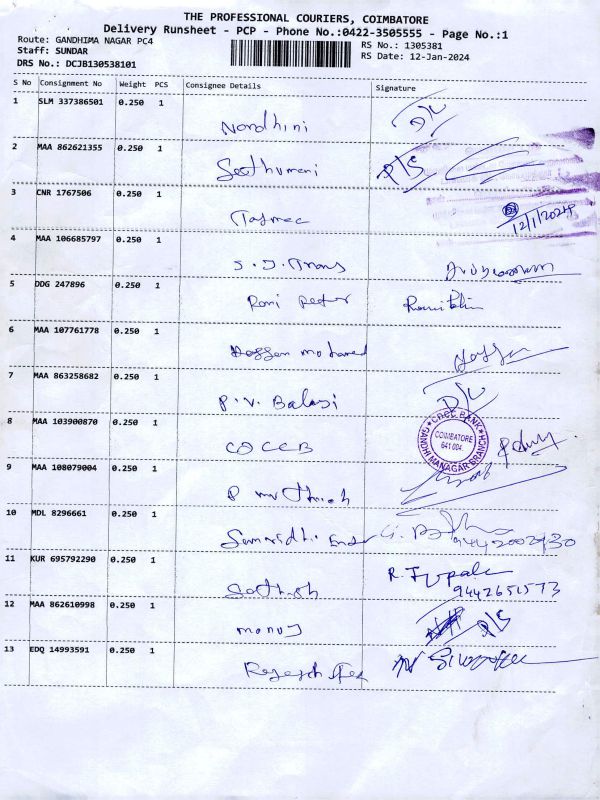 THE PROFESSIONAL COURIERS, COIMBATORE
Delivery Runsheet - PCP - Phone No.:0422-3505555 - Page No.:1
Route: GANDHIMA NAGAR PC4 RS No.: 1305381
Staff: SUNDAR RS Date: 12-Jan-2024
DRS No.: DCJB130538101
S No Consignment No Weight PCS Consignee Details Signature
1 SLM 337386501 0.250 1 Nandhini D/L
2 MAA 862621355 0.250 1 Seethumani P/S
3 CNR 1767506 0.250 1 12/1/2024
4 MAA 106685797 0.250 1 S.J. Trans
5 DDG 247896 0.250 1
6 MAA 107761778 0.250 1 Hassan mohamed
7 MAA 863258682 0.250 1 P.V. Balaji D/L
8 MAA 103900870 0.250 1 COCCB
CDCC BANK COIMBATORE 641 004. GANDHI MANAGAR BRANCH
9 MAA 108079004 0.250 1
10 MDL 8296661 0.250 1
11 KUR 695792290 0.250 1 Sathish R.
9442651573
12 MAA 862610998 0.250 1 P/S
13 EDQ 14993591 0.250 1 Rajesh